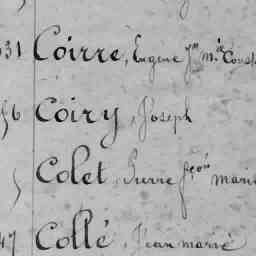 31 Coirre, Eugène
56 Coiry, Joseph
5 Colet, Pierre fçois marie
47 Collé, Jean marie